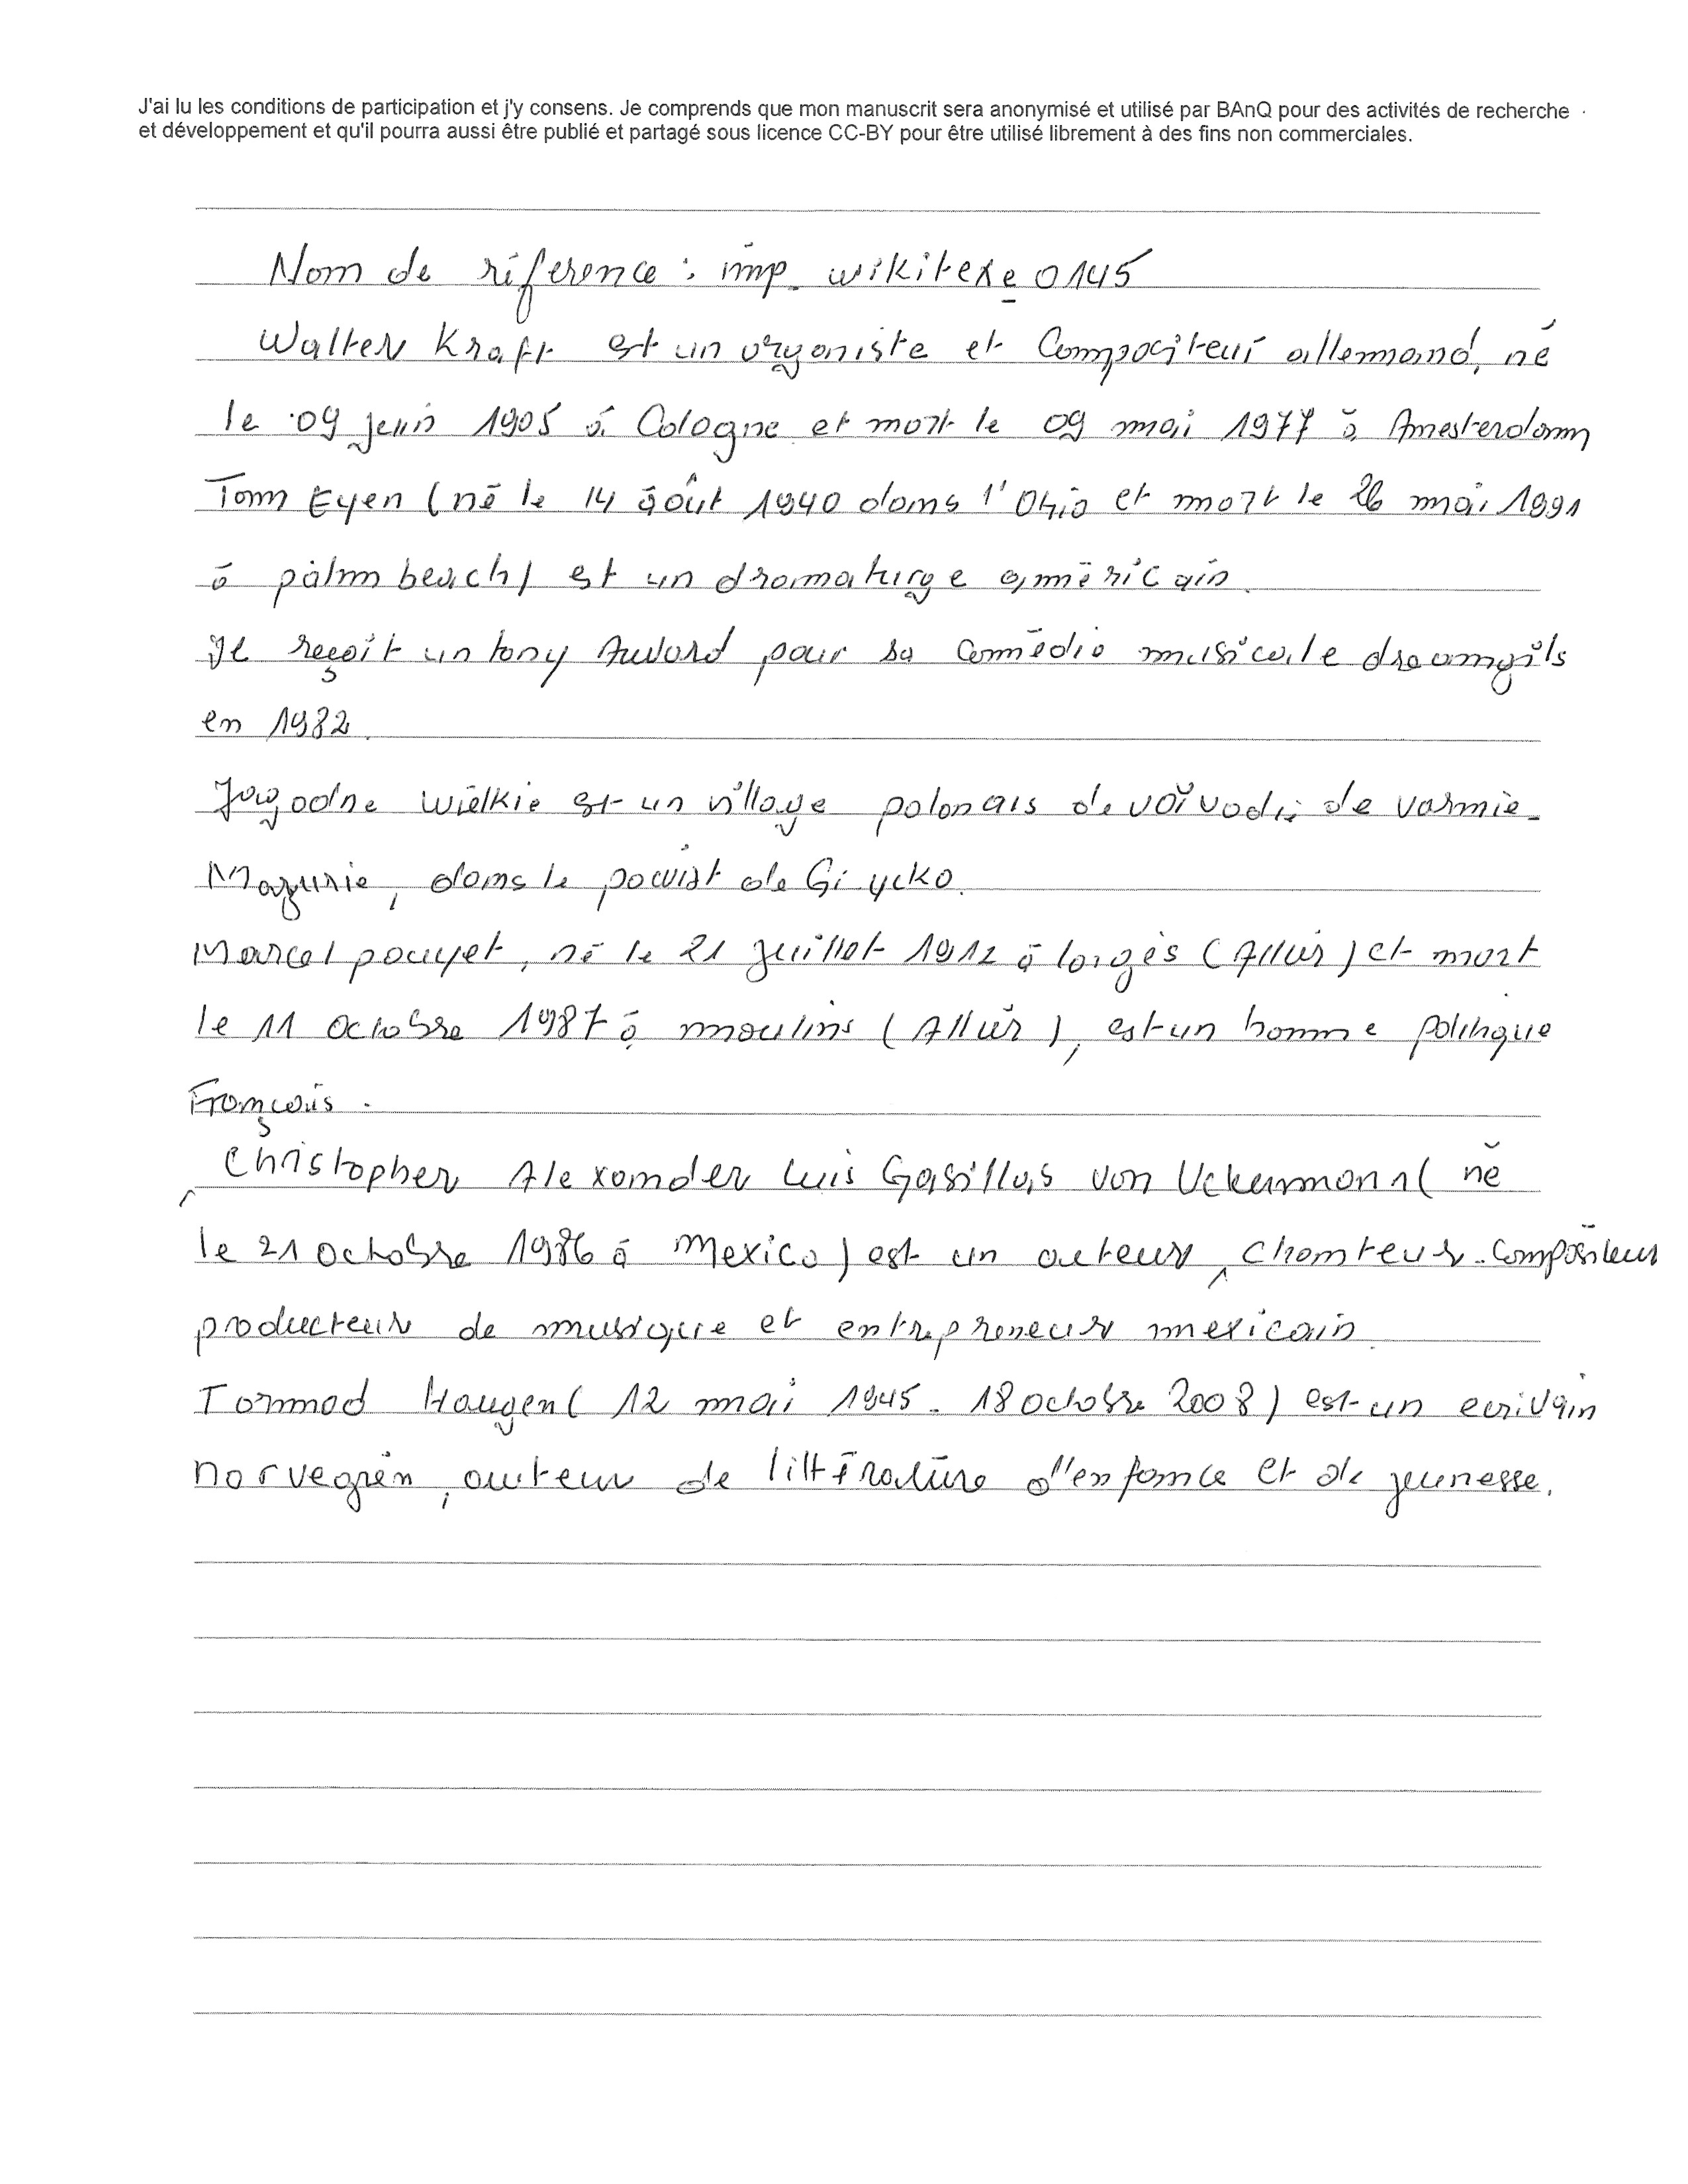 J'ai lu les conditions de participation et j'y consens. Je comprends que mon manuscrit sera anonymisé et utilisé par BAnQ pour des activités de recherche
et développement et qu'il pourra aussi être publié et partagé sous licence CC-BY pour être utilisé librement à des fins non commerciales.
Nom de réference : imp_wikitexe_0145
Walter Kraft est un organiste et Compositeur allemand, né
le 09 juin 1905 à Cologne et mort le 09 mai 1977 à Amesterdam
Tom Eyen (né le 14 août 1940 dans l'Ohio et mort le 26 mai 1991
à palm beach) est un dramaturge américain.
Il reçoit un tony Award pour sa Comédie musicale dreamgils
en 1982.
Jagodne wielkie est un village polonais de voïvodie de varmie-
Mazurie, dans le powiat de Giycko.
Marcel pouyet, né le 21 juillet 1912 à lorgès (Allier) et mort
le 11 octobre 1987 à moulins (Allier), est un homme politique
Français.
Christopher Alexander Luis Casillas von Uckermann (né
le 21 octobre 1986 à Mexico) est un auteur, chanteur-compositeur
producteur de musique et entrepreneur mexicain.
Tormod Haugen (12 mai 1945 - 18 octobre 2008) est un ecrivain
norvegien, auteur de littérature d'enfance et de jeunesse.